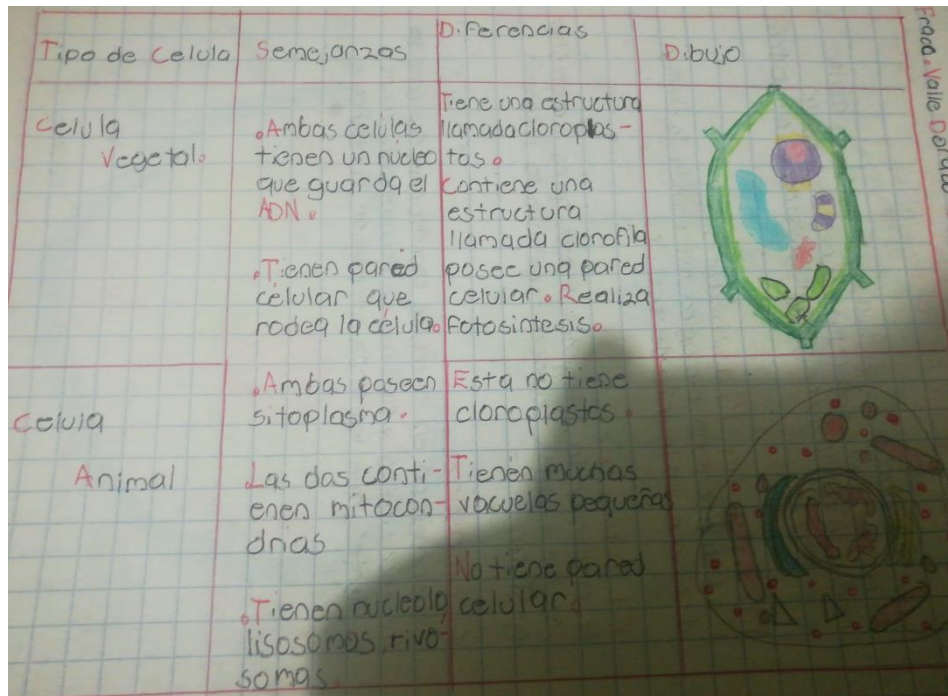 Tipo de Celula
Semejanzas
Diferencias
Dibujo
Celula
Vegetal.
.Ambas celulas
tienen un nucleo
que guarda el
ADN.
.Tienen pared
celular que
rodea la célula.
Tiene una estructura
llamada cloroplas-
tos.
Contiene una
estructura
llamada clorofila
posee una pared
celular. Realiza
fotosintesis.
Celula
Animal
.Ambas poseen
sitoplasma.
Las dos conti-
enen mitocon-
drias
.Tienen nucleolo
lisosomos, rivo-
somas.
Esta no tiene
cloroplastos.
Tienen muchas
vacuelas pequeñas
No tiene pared
celular.
Fracc. Valle Dorado